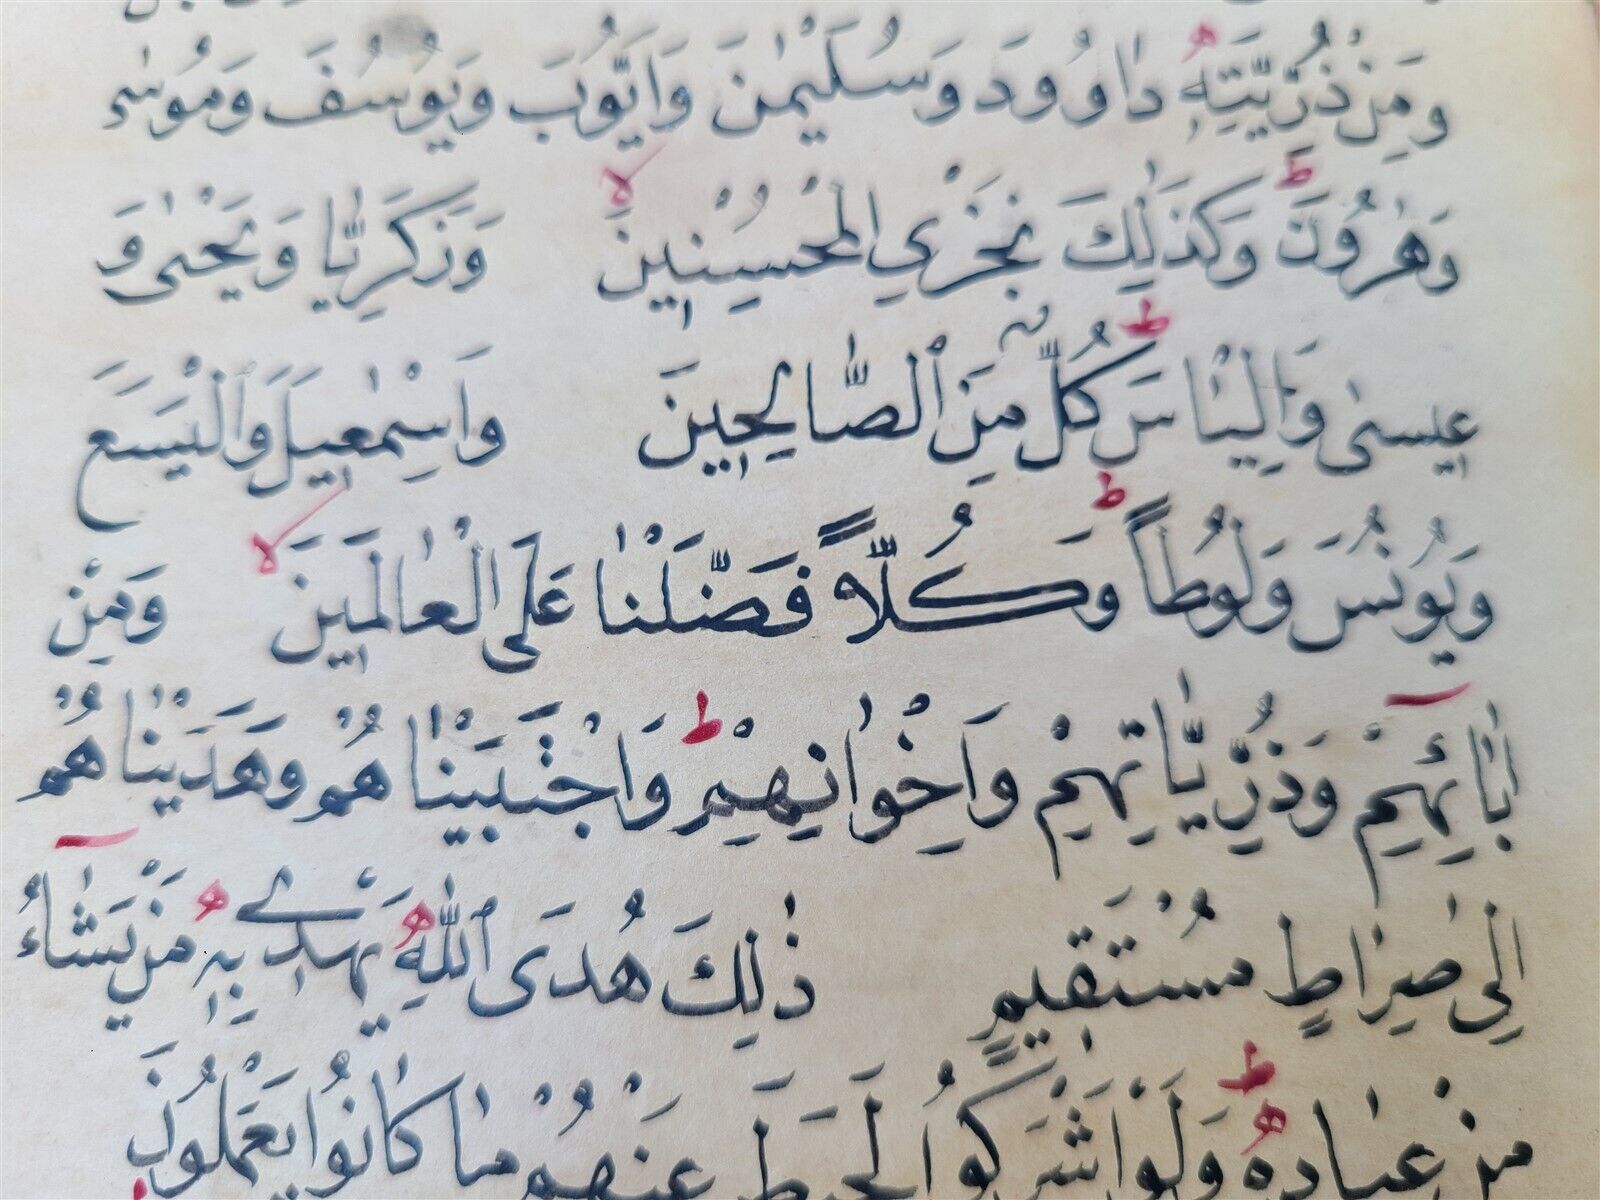 وَمِنْ ذُرِّيَّتِهِ دَاوُودَ وَسُلَيْمٰنَ وَاَيُّوبَ وَيُوسُفَ وَمُوسٰى
وَهٰرُونَ ط وَكَذٰلِكَ نَجْزِي الْمُحْسِنِينَ لا وَزَكَرِيَّا وَيَحْيٰى وَ
عِيسٰى وَاِلْيَاسَ ط كُلٌّ مِنَ ٱلصَّالِحِينَ وَاِسْمٰعِيلَ وَٱلْيَسَعَ
وَيُونُسَ وَلُوطاً ط وَكُلّاً فَضَّلْنَا عَلَى الْعَالَمِينَ لا وَمِنْ
اٰبَائِهِمْ وَذُرِّيَّاتِهِمْ وَاِخْوَانِهِمْ ط وَاجْتَبَيْنَا هُمْ وَهَدَيْنَا هُمْ
اِلٰى صِرَاطٍ مُسْتَقِيمٍ ذٰلِكَ هُدَى ٱللّٰهِ يَهْدِي بِهِ مَنْ يَشَاءُ
مِنْ عِبَادِهِ ط وَلَوْ اَشْرَكُوا لَحَبِطَ عَنْهُمْ مَا كَانُوا يَعْمَلُونَ